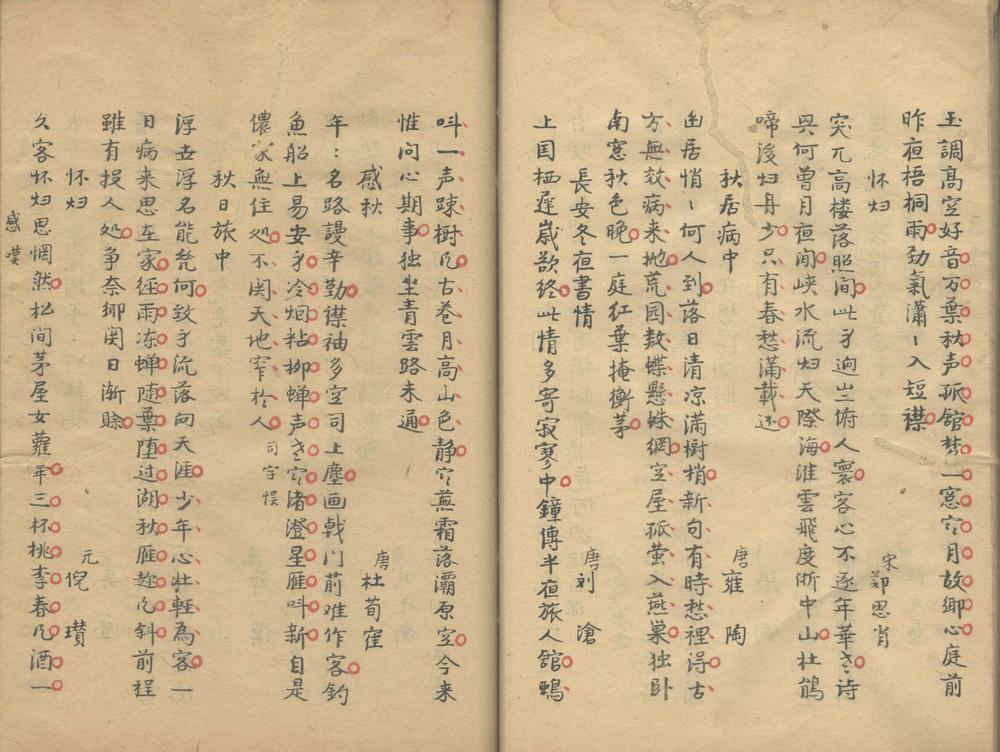 玉調高空好音万葉秋声孤館梦一窓寒月故鄉心庭前
昨夜梧桐雨劲氣瀟ヽ入短襟
怀归
宋 郑思肖
突兀高楼落照间此身迥岀俯人寰客心不逐年華老诗
兴何曽月夜闲峡水流归天際海淮雲飛度浙中山杜鵑
啼後归舟少只有春愁滿載还
秋居病中
唐 雍陶
幽居悄ヽ何人到落日清凉满樹梢新句有時愁裡得古
方無效病来抛荒园数蝶懸蛛網空屋孤萤入燕巢独卧
南窓秋色晚一庭红葉掩衡茅
長安冬夜書情
唐 刘滄
上囯栖遲嵗欲終此情多寄寂寥中鐘傳半夜旅人館鴉
呌一声疎樹风古巷月高山色静寒蕪霜落灞原空今来
惟问心期事独坐青雲路未通
感秋
唐 杜荀寉
年ヽ名路謾辛勤襟袖多空司上塵画戟门前难作客釣
魚船上易安身冷烟粘柳蝉声老寒渚澄星雁呌新自是
儂家無住处不関天地窄於人 司字悮
秋日旅中
浮世浮名能幾何致身流落向天涯少年心壮輕為客一
日病来思在家径雨冻蝉随葉堕过湖秋雁趂风斜前程
雖有授人处争奈鄉関日渐賒
怀归
元 倪瓚
久客怀归思惘然松间茅屋女蘿牵三杯桃李春风酒一
感嘆